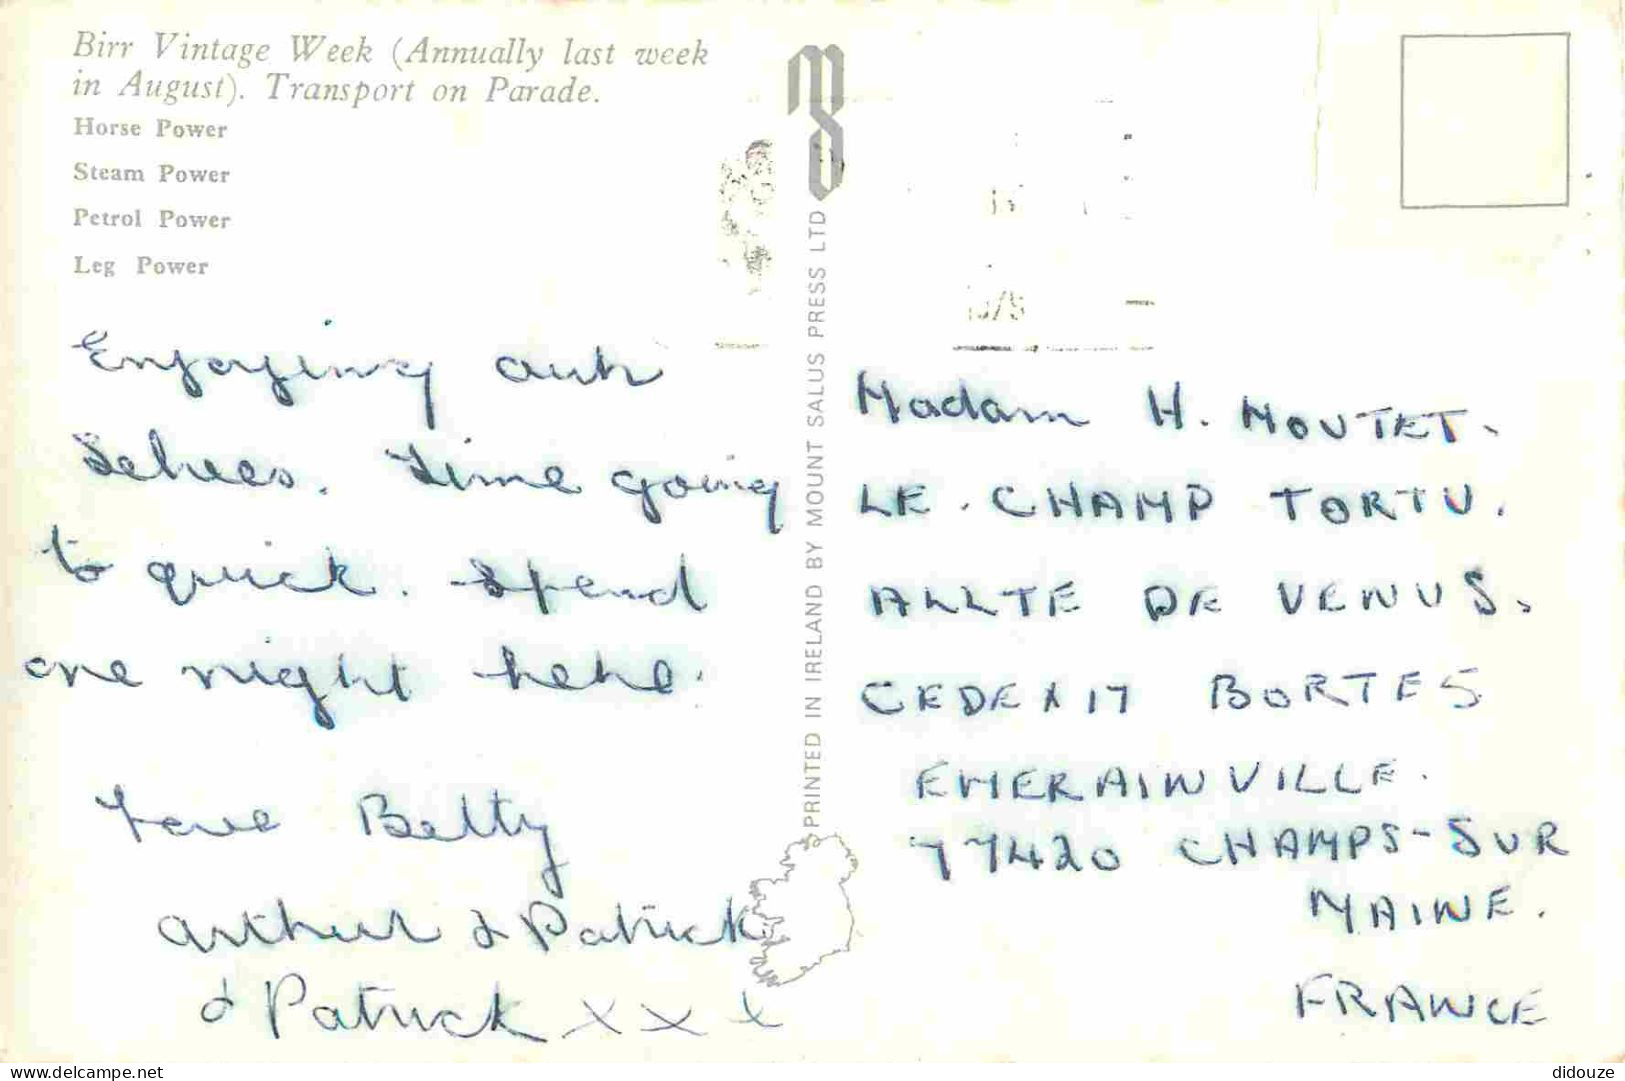 Birr Vintage Week (Annually last week
in August). Transport on Parade.
Horse Power
Steam Power
Petrol Power
Leg Power
Enjoying our
Selves. Time going
to quick. Spend
one night here.
Love Betty
Arthur & Patrick
& Patrick x x x
PRINTED IN IRELAND BY MOUNT SALUS PRESS LTD
Madam H. MOUTET.
LE. CHAMP TORTU.
ALLTE DE VENUS.
CEDEX 17 BORTES
EMERAINVILLE.
77420 CHAMPS-SUR
MAINE.
FRANCE
didouze